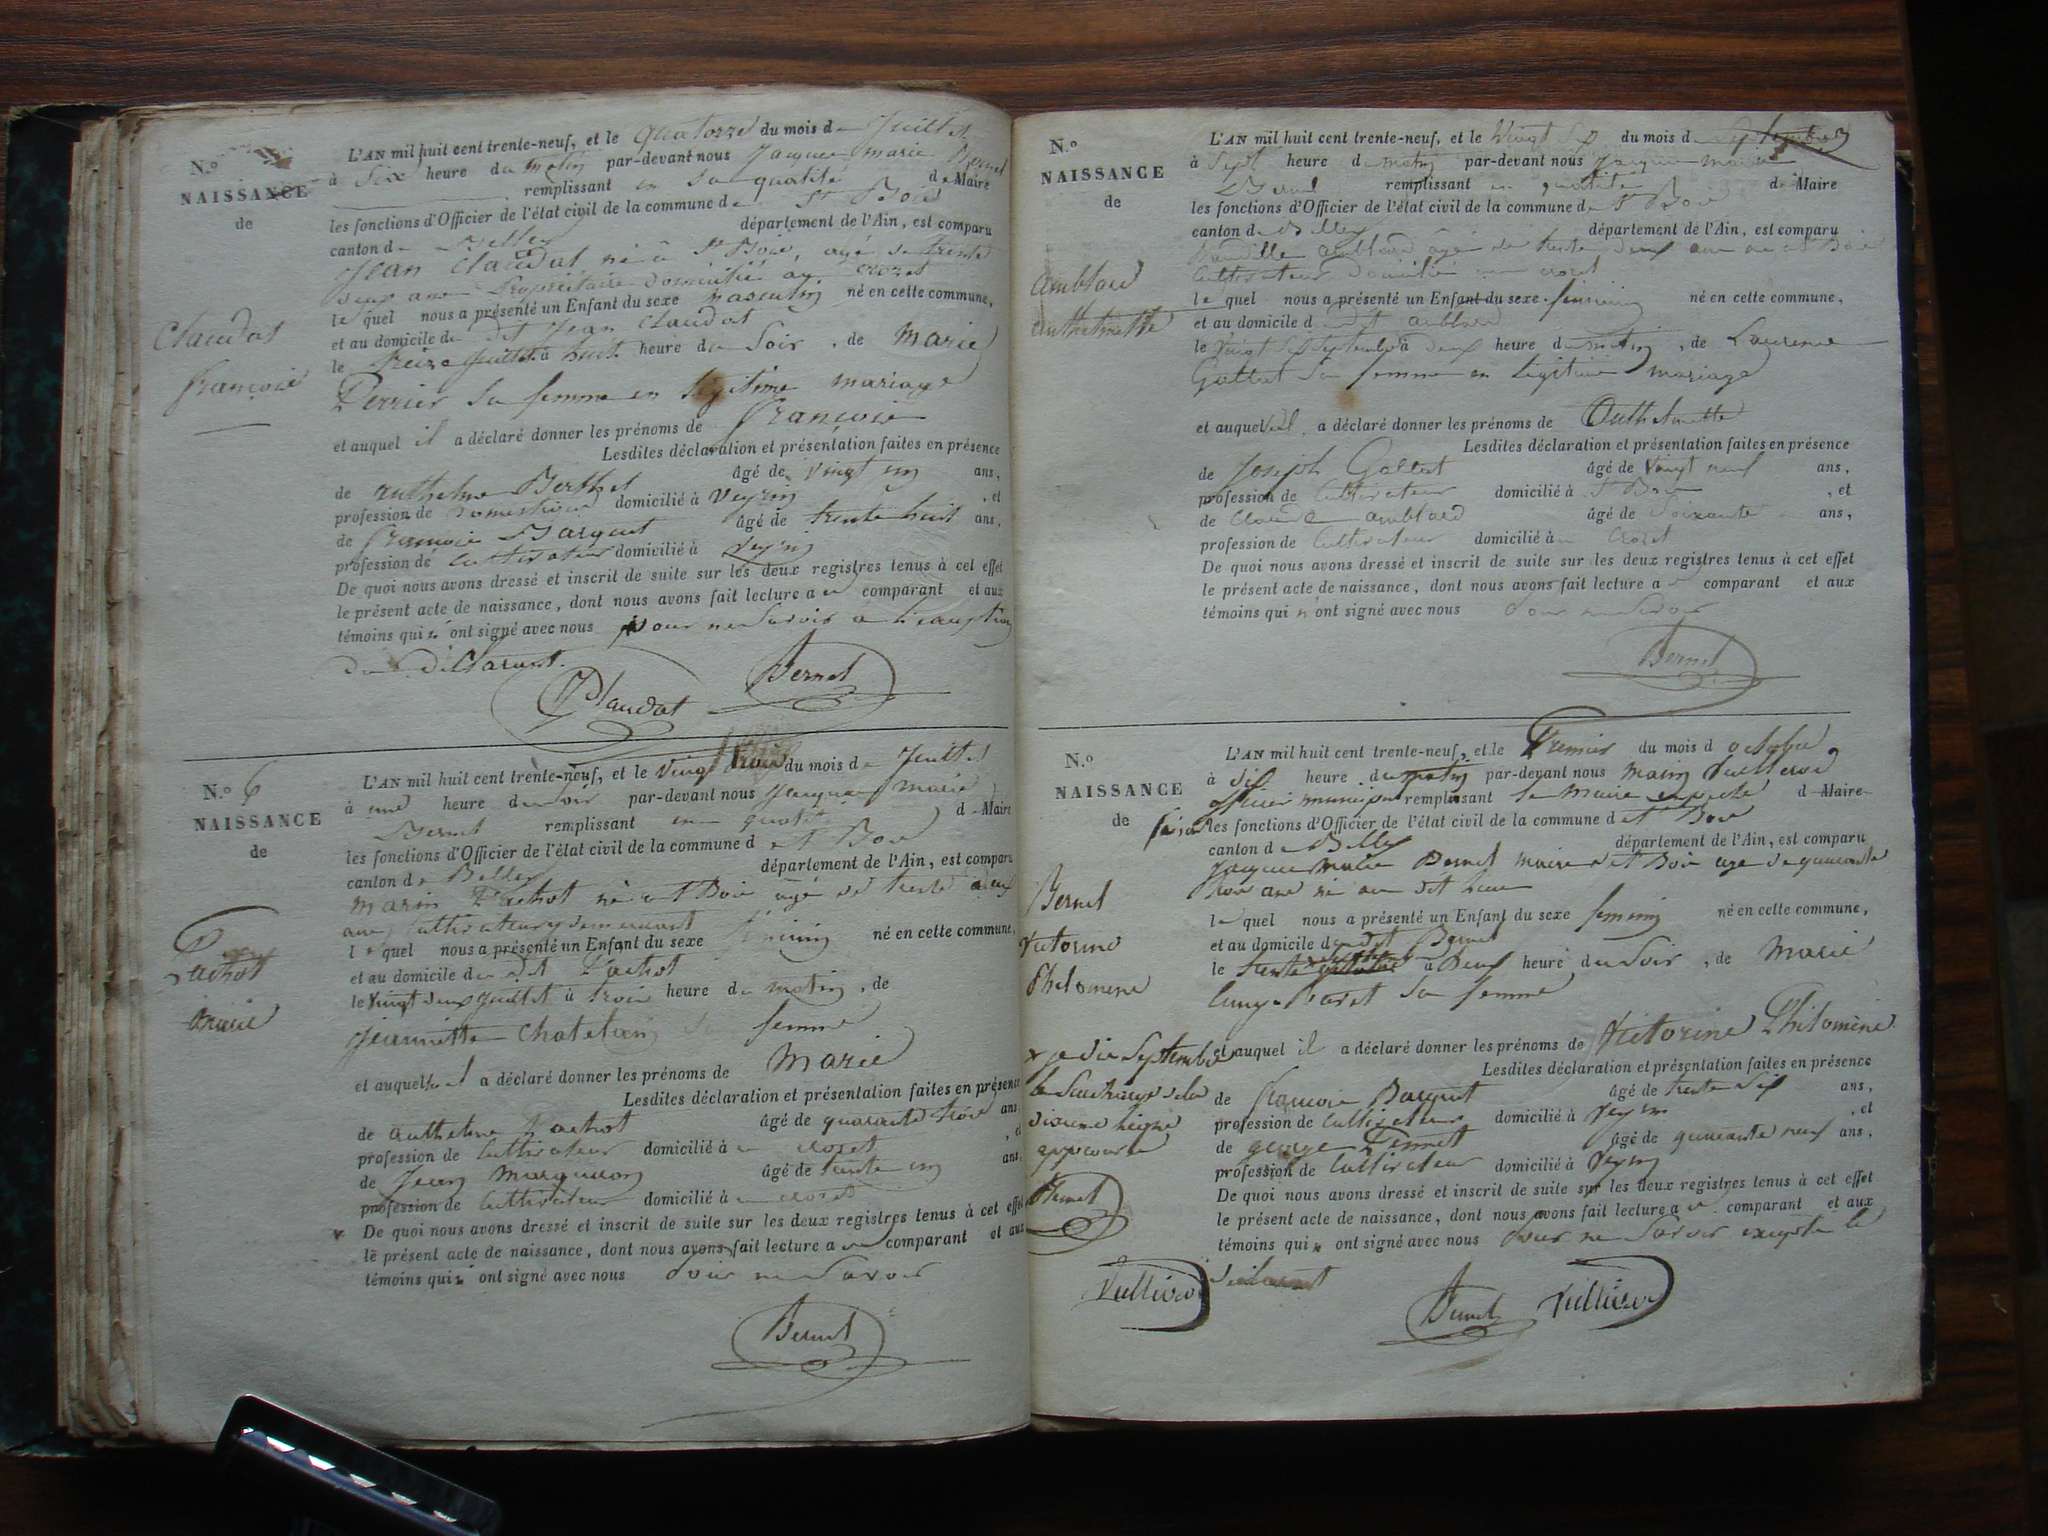 N.º
NAISSANCE
de
Claudat
François
L'AN mil huit cent trente-neuf, et le quatorze du mois de Juillet
à Six heure du matin par-devant nous Jacques marie Bernet
remplissant en sa qualité de Maire
les fonctions d'Officier de l'état civil de la commune de St Bois
canton de Belley département de l'Ain, est comparu
Jean Claudat né à St Bois, agé de trente
deux ans Propriétaire domicilié au crozet
le quel nous a présenté un Enfant du sexe masculin né en cette commune,
et au domicile du dit Jean Claudat
le treize Juillet à huit heure du Soir, de Marie
Perrier Sa femme en légitime mariage
et auquel il a déclaré donner les prénoms de François
Lesdites déclaration et présentation faites en présence
de anthelme Berthet âgé de vingt un ans,
profession de Domestique domicilié à veyrin, et
de françois Barquet âgé de trente huit ans,
profession de Cultivateur domicilié à veyrin
De quoi nous avons dressé et inscrit de suite sur les deux registres tenus à cet effet
le présent acte de naissance, dont nous avons fait lecture au comparant et aux
témoins qui n'ont signé avec nous pour ne Savoir à l'exception
du déclarant.
Claudat Bernet
N.º 6
NAISSANCE
de
Pachot
Marie
L'AN mil huit cent trente-neuf, et le vingt trois du mois de Juillet
à une heure du soir par-devant nous Jacques marie
Bernet remplissant en qualité de Maire
les fonctions d'Officier de l'état civil de la commune de St Bois
canton de Belley département de l'Ain, est comparu
Marin Pachot né à St Bois âgé de trente deux
ans, cultivateur y demeurant
le quel nous a présenté un Enfant du sexe féminin né en cette commune,
et au domicile du dit Pachot
le vingt deux Juillet à trois heure du matin, de
Jeannette Chatelain sa femme
et auquel il a déclaré donner les prénoms de Marie
Lesdites déclaration et présentation faites en présence
de anthelme Pachot âgé de quarante trois ans,
profession de Cultivateur domicilié à crozet, et
de Jean Marguiron âgé de trente un ans,
profession de Cultivateur domicilié à crozet
De quoi nous avons dressé et inscrit de suite sur les deux registres tenus à cet effet
le présent acte de naissance, dont nous avons fait lecture au comparant et aux
témoins qui n'ont signé avec nous pour ne Savoir
Bernet
N.º
NAISSANCE
de
amblard
anthelmette
L'AN mil huit cent trente-neuf, et le Vingt Sept du mois de Septembre
à Sept heure du matin par-devant nous Jacques marie
Bernet remplissant en qualité de Maire
les fonctions d'Officier de l'état civil de la commune de St Bois
canton de Belley département de l'Ain, est comparu
amblard âgé de trente deux ans né à St Bois
Cultivateur domicilié au crozet
le quel nous a présenté un Enfant du sexe féminin né en cette commune,
et au domicile du dit amblard
le vingt Sept Septembre à deux heure du matin, de Laurence
Gallet Sa femme en légitime mariage
et auquel il a déclaré donner les prénoms de Anthelmette
Lesdites déclaration et présentation faites en présence
de Joseph Gallet âgé de Vingt neuf ans,
profession de Cultivateur domicilié à St Bois, et
de Claude amblard âgé de Soixante ans,
profession de Cultivateur domicilié à crozet
De quoi nous avons dressé et inscrit de suite sur les deux registres tenus à cet effet
le présent acte de naissance, dont nous avons fait lecture au comparant et aux
témoins qui n'ont signé avec nous pour ne Savoir
Bernet
N.º
NAISSANCE
de
Bernet
Victorine
Philomène
L'AN mil huit cent trente-neuf, et le Premier du mois d octobre
à Six heure du matin par-devant nous Marin Vullierod
officier municipal remplissant le Maire empeché d Maire
les fonctions d'Officier de l'état civil de la commune de St Bois
canton de Belley département de l'Ain, est comparu
Jacques Marie Bernet maire de St Bois age de quarante
trois ans né au dit lieu
le quel nous a présenté un Enfant du sexe féminin né en cette commune,
et au domicile du dit Bernet
le trente à Deux heure du Soir, de Marie
Sa femme
et auquel il a déclaré donner les prénoms de Victorine Philomène
Lesdites déclaration et présentation faites en présence
de François Barquet âgé de trente Six ans,
profession de Cultivateur domicilié à veyrin, et
de george Pennet âgé de quarante neuf ans,
profession de Cultivateur domicilié à veyrin
De quoi nous avons dressé et inscrit de suite sur les deux registres tenus à cet effet
le présent acte de naissance, dont nous avons fait lecture au comparant et aux
témoins qui n ont signé avec nous pour ne Savoir excepté le
déclarant
x je dis Septembre
la Surcharge de la
dixieme ligne
approuvée
Bernet
Vullierod
Bernet Vullierod